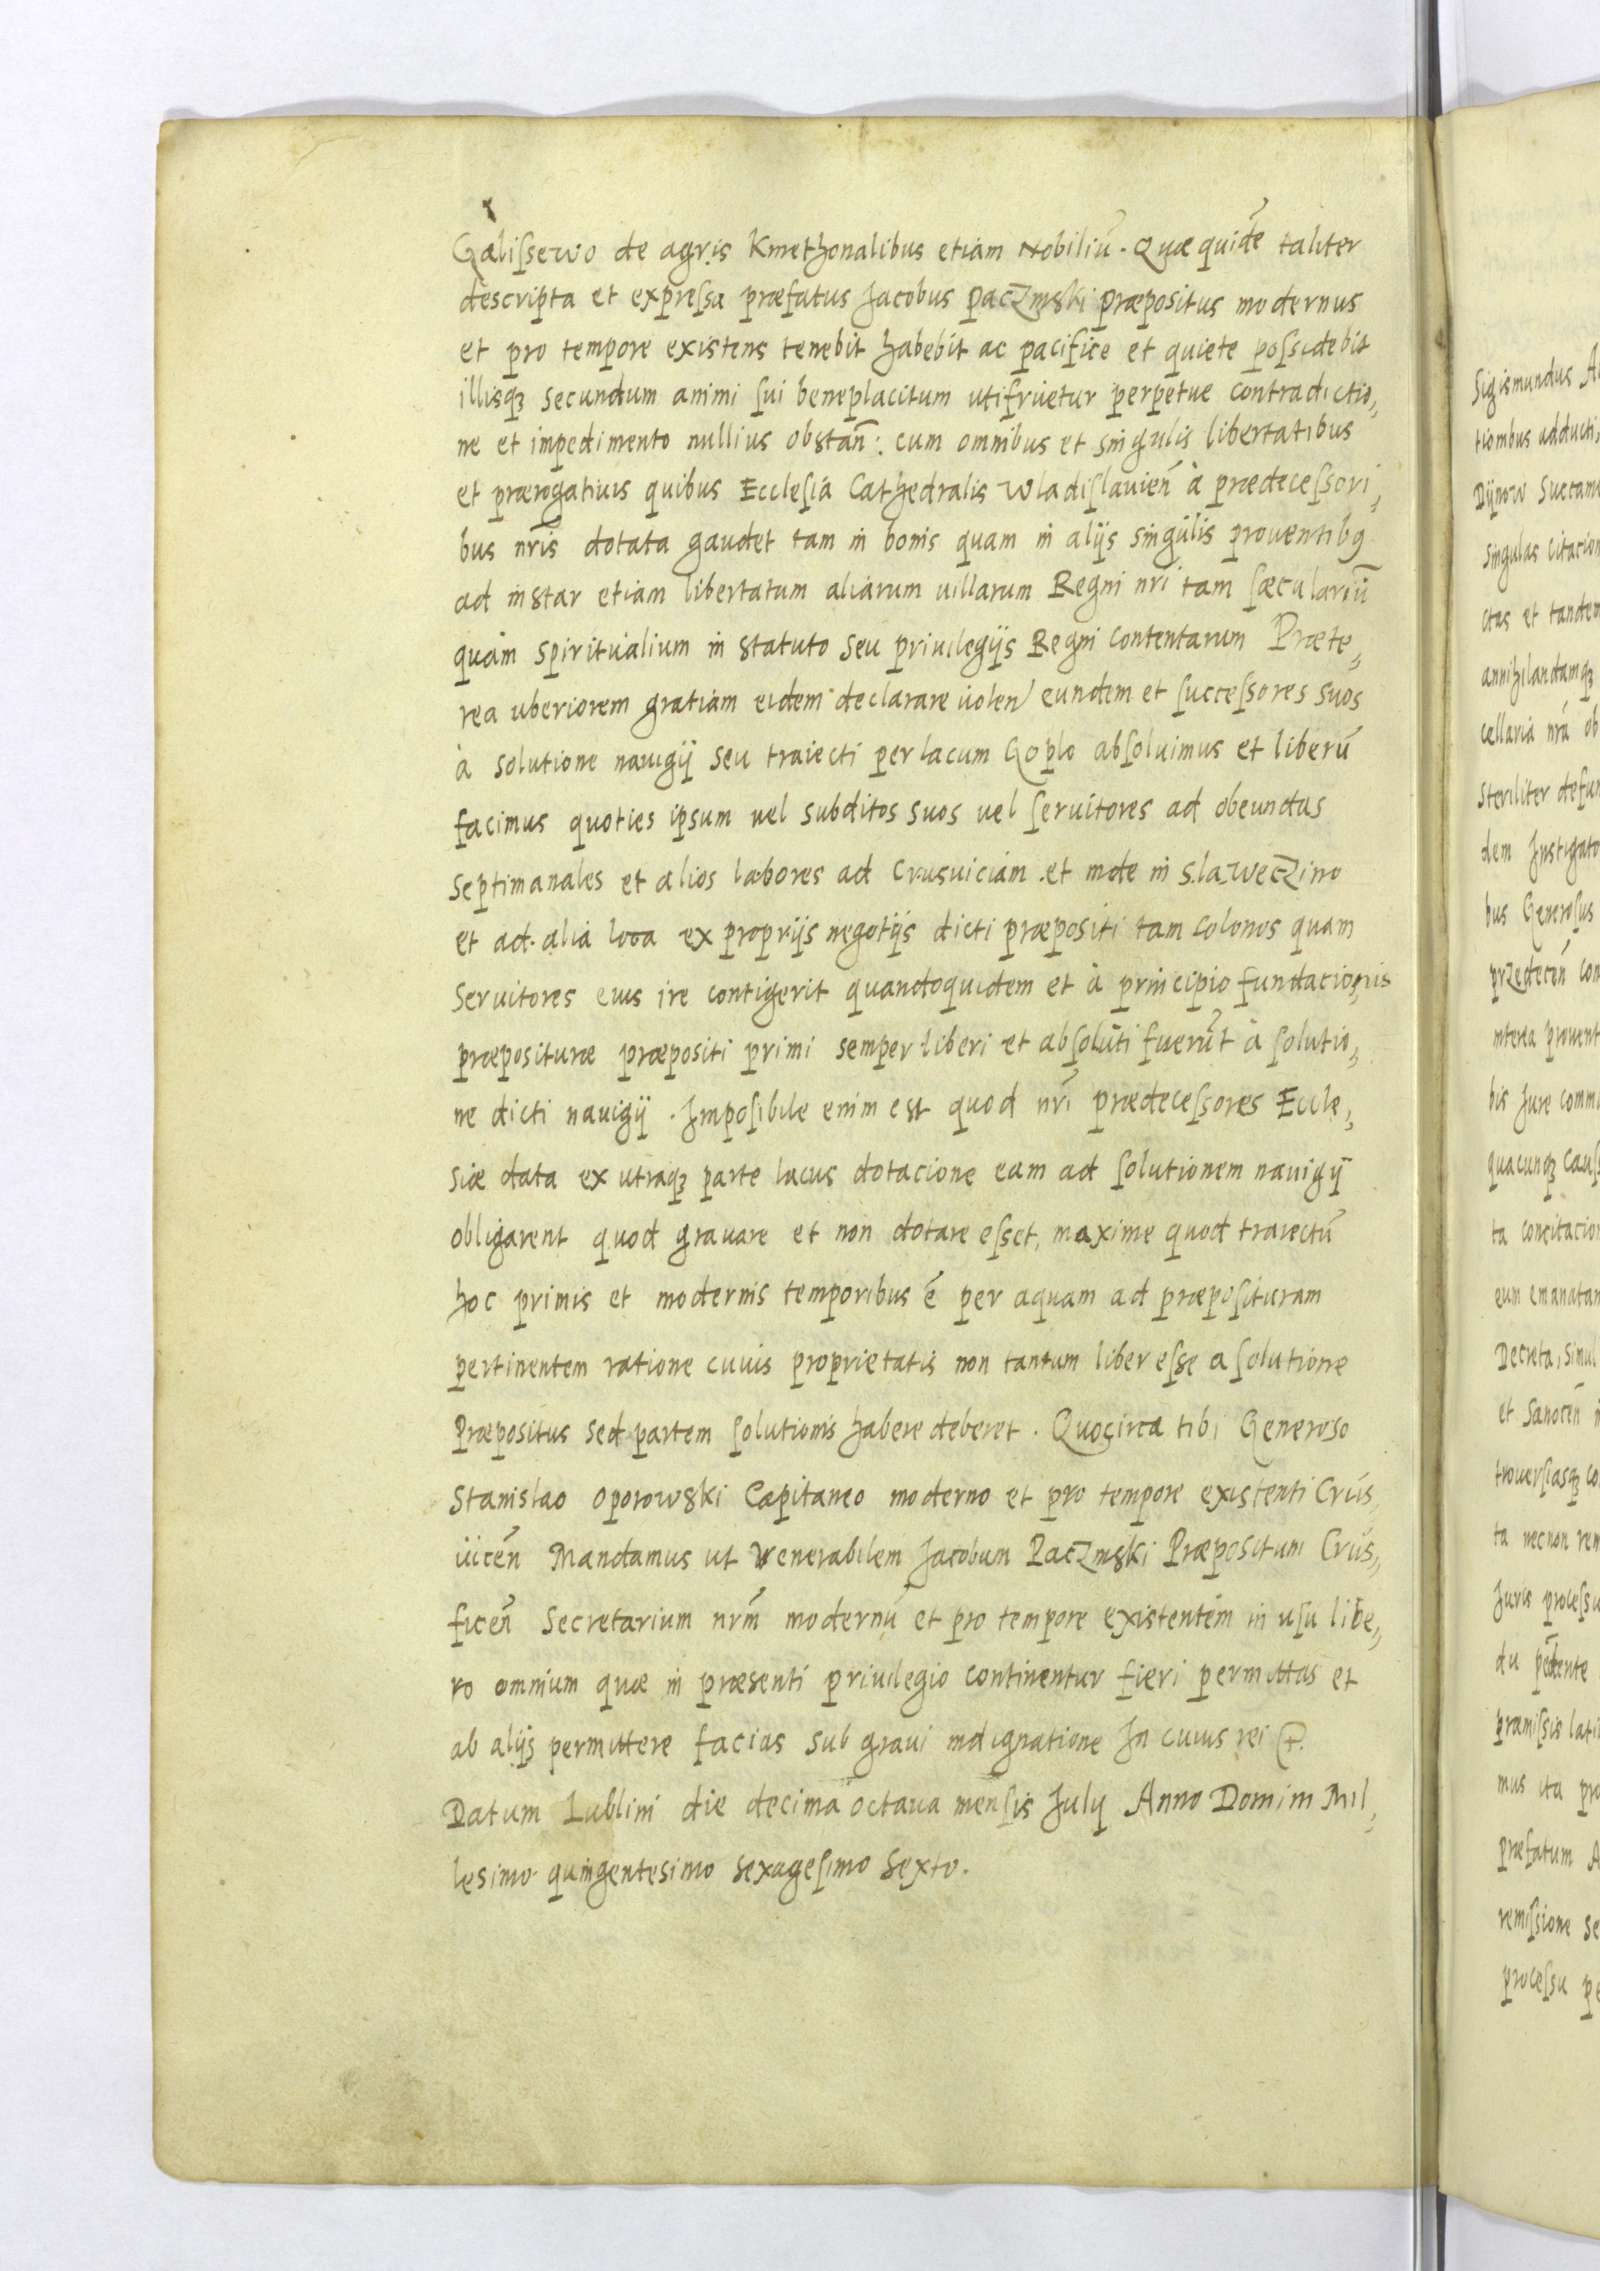 Gælissewo de agris Kmethonalibus etiam Nobiliū. Quæ quidē taliter
descripta et expressa præfatus Jacobus Paczinski præpositus modernus
et pro tempore existens tenebit habebit ac pacifice et quiete possidebit
illisqꝫ secundum animi sui beneplacitum utifruetur perpetue contradictio„
ne et impedimento nullius obstan̄: cum omnibus et singulis libertatibus
et prærogatiuis quibus Ecclesia Cathedralis Wladislauien̄ à prædecessori„
bus nr̄is dotata gaudet tam in bonis quam in alijs singulis prouentibꝯ
ad instar etiam libertatum aliarum uillarum Regni nr̄i tam sæculariū
quam spiritualium in statuto seu priuilegijs Regni contentarum Præte„
rea uberiorem gratiam eidem declarare uolen̄ eundem et successores suos
à solutione nauigij seu traiecti per lacum Goplo absoluimus et liberū
facimus quoties ipsum uel subditos suos uel seruitores ad obeundas
septimanales et alios labores ad Crusuiciam et inde in Slaweczino
et ad alia loca ex proprijs negotijs dicti præpositi tam colonos quam
seruitores eius ire contigerit quandoquidem et à principio fundacionis
præposituræ præpositi primi semper liberi et absoluti fuerūt à solutio„
ne dicti nauigij. Imposibile enim est quod nr̄i prædecessores Eccle„
siæ data ex utraqꝫ parte lacus dotacione eam ad solutionem nauigij
obligarent quod grauare et non dotare esset, maxime quod traiectū
hoc primis et modernis temporibus ē per aquam ad præposituram
pertinentem ratione cuius proprietatis non tantum liber esse a solutione
Præpositus sed partem solutionis habere deberet. Quocirca tibi Generoso
Stanislao Oporowski Capitaneo moderno et pro tempore existenti Crus„
uicen̄ Mandamus ut Venerabilem Jacobum Paczinski Præpositum Crus„
ficen̄ Secretarium nr̄m modernū et pro tempore existentem in usu libe„
ro omnium quæ in præsenti priuilegio continentur fieri permittas et
ab alijs permittere facias sub graui indignatione In cuius rei &.
Datum Lublini die decima octaua mensis July Anno Domini Mil„
lesimo quingentesimo sexagesimo sexto.
Sigismundus
tionibus adducti,
singulas
ctas et tandem
annihilandamqꝫ
cellaria nr̄a ob
steriliter
dem Instigato
bus Generosus
interea prouent
bis Jure commu
quacunqꝫ
ta
eum emanatam
Decreta, simul
et Sanocen̄
ta necnon rem
Juris processu
præmissis
mus ita pro
Præfatum A
remissione se
processu pe